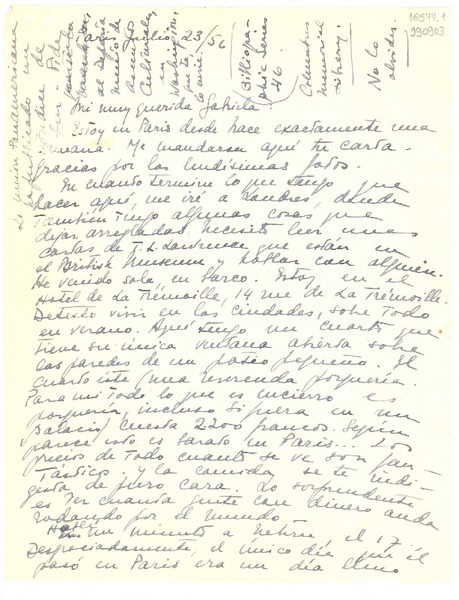 16544.1
990903
La Unión Panamericana
ha publicado un
Paris Julio 23/56
(Bibliogra-
phic Series
46
Columbus
Memorial
Library)
No lo
olvides.
Mi muy querida Gabriela:
Estoy en Paris desde hace exactamente una
semana. Me mandaron aquí tu carta.
Gracias por las lindísimas fotos.
En cuanto termine lo que tengo que
hacer aquí, me iré a Londres, donde
también tengo algunas cosas que
dejar arregladas. Necesito leer unas
cartas de T. E. Lawrence que están en
el British Museum y hablar con alguien.
He venido sola, en barco. Estoy en el
Hotel de La Trémoille, 14 rue de La Trémoille.
Detesto vivir en las ciudades, sobre todo
en verano. Aquí tengo un cuarto que
tiene su única ventana abierta sobre
las paredes de un patio pequeño. El
cuarto éste (una reverenda porquería.
Para mi todo lo que es encierro es
porquería, incluso si fuera en un
palacio) cuesta 2200 francos. Según
parece esto es barato en Paris... Los
precios de todo cuanto se ve son fan-
tásticos. Y la comida se te indi-
gesta de puro cara. Lo sorprendente
es ver cuanta gente con dinero anda
rodando por el mundo
un minuto a Nehru, el 17
Desgraciadamente, el único día que él
pasó en Paris era un día lleno